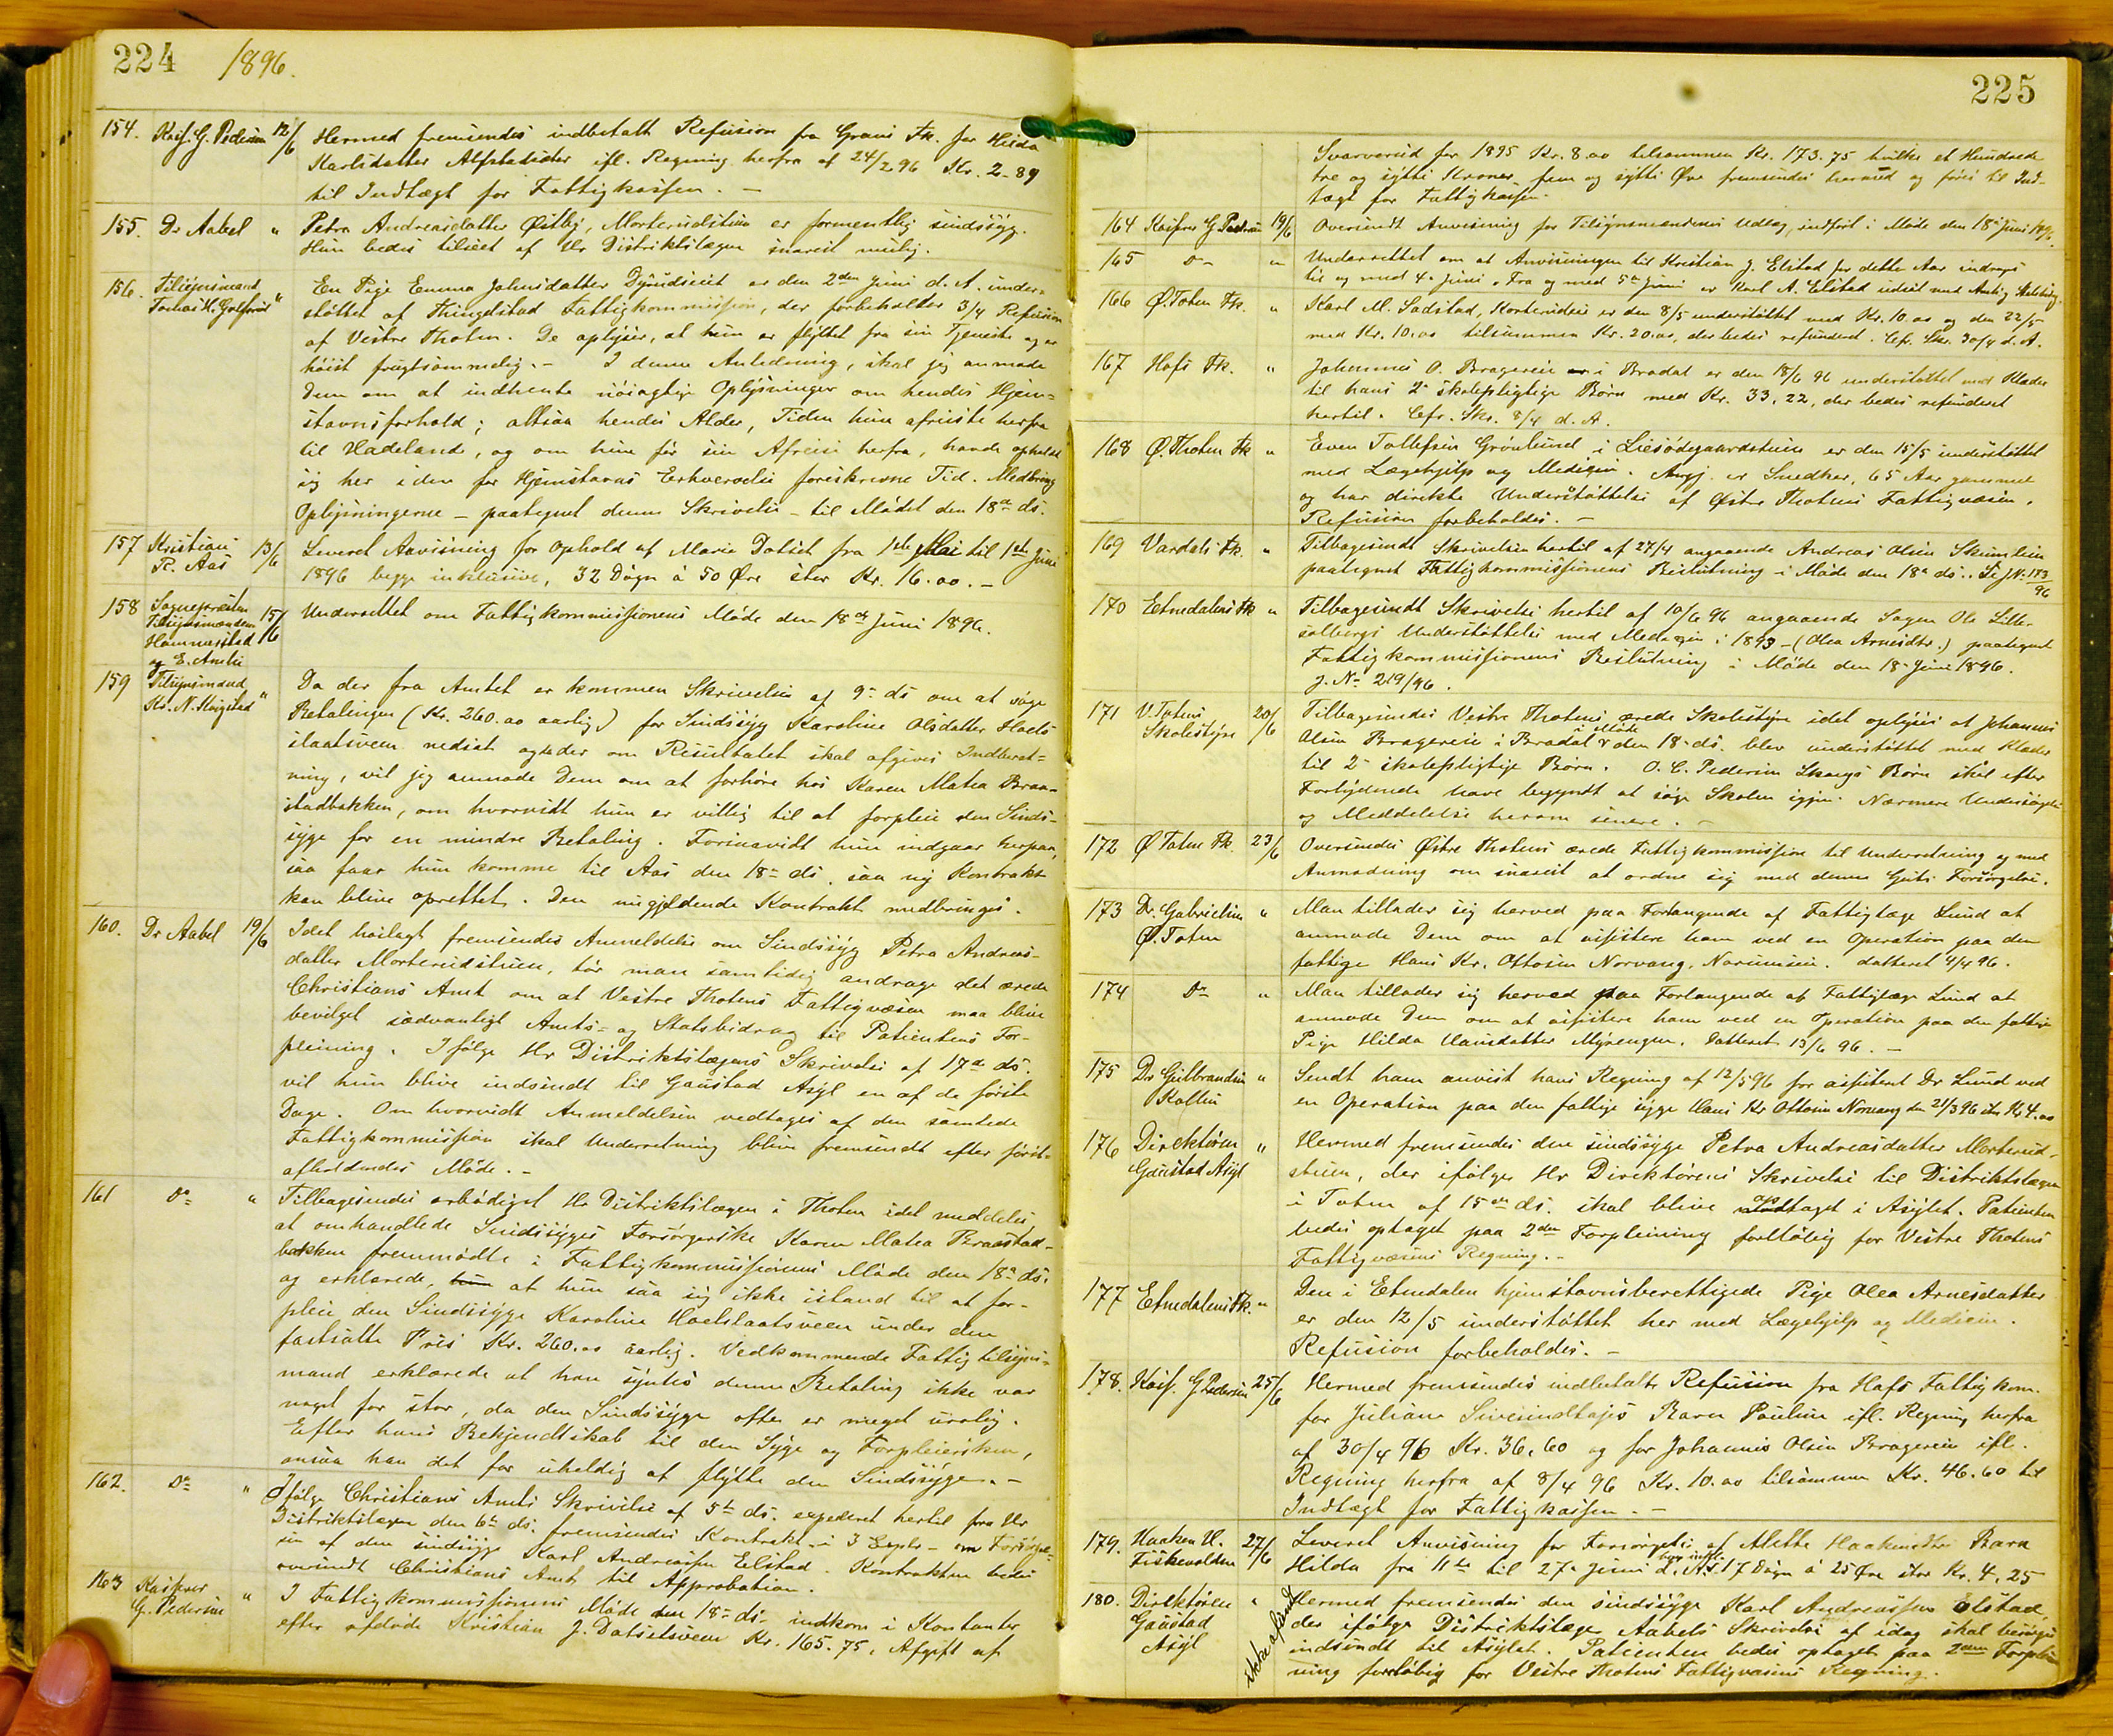 224 1896.
154. Kasf. G. Pedersen 12/6 Hermed fremsendes indbetalt Refusion fra Grans Fk. for
Karlsdatter ifl. Regning herfra af 24/2 96 Kr. 2-89
til Indtægt for Fattigkassen. —
155. Dr Aabel " Petra Andreasdatter Østby, Morterudstuen er formentlig sindssyg.
Hun bedes tilseet af Hr Distriktslægen snarest mulig.
156. Tilsynsmand En Pige Emma Johnsdatter er den 2den Juni d. A. under-
Tomas H. " støttet af Fattigkommission, der forbeholder 3/4 Refusion
af Vestre Thoten. De oplyser, at hun er flyttet fra sin Tjeneste og er
høist frugtsommelig. — I denne Anledning, skal jeg anmode
Dem om at indhente nøiagtige Oplysninger om hendes Hjem-
stavnsforhold; altsaa hendes Alder, Tiden hun afreiste herfra
til Hadeland, og om hun før sin Afreise herfra, havde opholdt
sig her i den for Hjemstavns Erhvervelse foreskrevne Tid. Medbring
Oplysningerne — paategnet denne Skrivelse — til Mødet den 18de ds.
157 Kristian 13/6 Leveret Anvisning for Ophold af Marie Dotset fra 1ste Mai til 1ste Juni
P. Aas 1896 begge inklusive, 32 Døgn á 50 Øre stor Kr. 16.00. —
158 Sognepresten 15/6 Underrettet om Fattigkommissionens Møde den 18de Juni 1896.
Tilsynsmændene
Hammerstad
og E. Amlie
159 Tilsynsmand Da der fra Amtet er kommen Skrivelse af 9de ds om at søge
Kr. N. " Betalingen (Kr. 260.00 aarlig) for Sindssyg Karoline Olsdatter Hoels-
slaatsveen nedsat og der om Resultatet skal afgives Indberet-
ning, vil jeg anmode Dem om at forhøre hos Karen Matea Braa-
stadbakken, om hvorvidt hun er villig til at forpleie den Sinds-
syge for en mindre Betaling. Forsaavidt hun indgaar herpaa,
saa faar hun komme til Aas den 18de ds. saa ny Kontrakt
kan blive oprettet. Den nugjældende Kontrakt medbringes.
160. Dr Aabel 19/6 Idet hoslagt fremsendes Anmeldelse om Sindssyg Petra Andreas-
datter Morterudstuen, tør man samtidig andrage det ærede
Christians Amt om at Vestre Thotens Fattigvæsen maa blive
bevilget sædvanligt Amts- og Statsbidrag til Patientens For-
pleining. Ifølge Hr Distriktslægens Skrivelse af 17de ds.
vil hun blive indsendt til Gaustad Asyl en af de første
Dage. Om hvorvidt Anmeldelsen vedtages af den samlede
Fattigkommission skal Underretning blive fremsendt efter først
afholdendes Møde. —
161 Do " Tilbagesendes ærbødigst Hr Distriktslægen i Thoten idet meddeles,
at omhandlede Sindssyges Forsørgerske Karen Matea Braastad-
bakken fremmødte i Fattigkommissionens Møde den 18de ds.
og erklærede at hun saa sig ikke istand til at for-
pleie den Sindssyge Karoline Hoelslaatsveen under den
fastsatte Pris Kr. 260.00 aarlig. Vedkommende Fattigtilsyns-
mand erklærede at han syntes denne Betaling ikke var
noget for stor, da den Sindssyge ofte er meget urolig.
Efter hans Bekjendtskab til den Syge og Forpleiersken,
ansaa han det for uheldig at flytte den Sindssyge. —
162. Do " Ifølge Christians Amts Skrivelse af 5te ds. expederet hertil fra Hr
Distriktslægen den 6te ds. fremsendes Kontrakt i 3 Expl. — om Forsørgel-
sen af den sindssyge Karl Andreassen Elstad. Kontrakten bedes
oversendt Christians Amt til Approbation.
163 Kasserer " I Fattigkommissionens Møde den 18de ds. indkom i Kontanter
G. Pedersen efter afdøde Kristian J. Dotsetsveen Kr. 165.75, Afgift af
225
for 1895 Kr. 8.00 tilsammen Kr. 173.75 hvilke et Hundrede
tre og sytti Kroner fem og sytti Øre fremsendes hermed og føres til Ind-
tægt for Fattigkassen.
164 Kasserer G Pedersen 19/6 Oversendt Anvisning for Tilsynsmændenes Udlæg, indført i Møde den 18de Juni 1896.
165 Do " Underrettet om at Anvisningen til Kristian J. Elstad for dette Aar inddrages
til og med 4. Juni. Fra og med 5te Juni er Karl A. Elstad udsat med
166 Ø. Toten Fk. " Karl M. Sadstad, er den 8/5 understøttet med Kr. 10.00 og den 22/5
med Kr. 10.00 tilsammen Kr. 20.00, der bedes refunderet. Cfr. Skr. 30/4 d. A.
167 Hofs Fk. " Johannes O. Bragereie i Bradal er den 18/6 96 understøttet med Klæder
til hans 2 skolepligtige Børn med Kr. 33.22, der bedes refunderet
hertil. Cfr. Skr. 8/4 d. A.
168 Ø. Thoten Fk " Even Tollefsen Grønlund i er den 15/5 understøttet
med Lægehjelp og Medicin. Angj. er Snedker, 65 Aar gammel
og har direkte Understøttelse af Østre Thotens Fattigvæsen.
Refusion forbeholdes. —
169 Vardals Fk. " Tilbagesendt Skrivelsen hertil af 27/4 angaaende Andreas Olsen
paategnet Fattigkommissionens Beslutning i Møde den 18de ds. Se J.No. 173/96
170 Etnedalens Fk " Tilbagesendt Skrivelse hertil af 10/6 96 angaaende Sagen Ole Lille-
solbergs Understøttelse med Medicin i 1893 — (Olea Arnesdtr.) paategnet
Fattigkommissionens Beslutning i Møde den 18. Juni 1896.
J. No 219/96.
171 V. Totens 20/6 Tilbagesendes Vestre Thotens ærede Skolestyre idet oplyses at Johannes
Skolestyre Olsen Bragereie i Bradal i Møde den 18. ds. blev understøttet med Klæder
til 2 skolepligtige Børn. O. C. Pedersen Skougs Børn skal efter
Forlydende have begyndt at søge Skolen igjen. Nærmere Undersøgelse
og Meddelelse herom senere. —
172 Ø Toten Fk. 23/6 Oversendes Østre Thotens ærede Fattigkommission til Underretning og med
Anmodning om snarest at ordne sig med denne Gjuts Forsørgelse.
173 Dr. Gabrielsen " Man tillader sig herved paa Forlangende af Fattiglæge Lund at
Ø. Toten anmode Dem om at assistere ham ved en Operation paa den
fattige Hans Kr. Ottosen Norvang, datteret 4/4 96.
174 Do " Man tillader sig herved paa Forlangende af Fattiglæge Lund at
anmode Dem om at assistere ham ved en Operation paa den fattige
Pige Hilda Hansdatter Myrengen. Datteret 13/6 96. —
175 Dr Gulbrandsen " Sendt ham anvist hans Regning af 12/5 96 for assistent Dr Lund ved
Kolbu en Operation paa den fattige syge Hans Kr Ottosen Norvang den 21/3 96 stor Kr 4.00
176 Direktøren " Hermed fremsendes den sindssyge Petra Andreasdatter Morterud-
Gaustad Asyl stuen, der ifølge Hr Direktørens Skrivelse til Distriktslægen
i Toten af 15de ds. skal blive optaget i Asylet. Patienten
bedes optaget paa 2den Forpleining foreløbig for Vestre Thotens
Fattigvæsens Regning. —
177 Etnedalens Fk. " Den i Etnedalen hjemstavnsberettigede Pige Olea Arnesdatter
er den 12/5 understøttet her med Lægehjelp og Medicin.
Refusion forbeholdes. —
178. Kass. G Pedersen 25/6 Hermed fremsendes indbetalt Refusion fra Hofs Fattigkom.
for Juliane Barn Pauline ifl. Regning herfra
af 30/4 96 Kr. 36.60 og for Johannes Olsen Bragereie ifl.
Regning herfra af 8/4 96 Kr. 10.00 tilsammen Kr. 46.60 til
Indtægt for Fattigkassen. —
179. Haaken H. 27/6 Leveret Anvisning for Forsørgelse af Mette Haakensdtr. Barn
Fiskevolden Hilda fra 11te til 27. Juni d. A. 17 Døgn á 25 Øre stor Kr. 4,25
180. Direktøren " Hermed fremsendes den sindssyge Karl Andreassen Elstad,
Gaustad der ifølge Distriktslæge Aabels Skrivelse af idag skal besørges
Asyl indsendt til Asylet. Patienten bedes optaget paa 2den Forplei-
ning foreløbig for Vestre Thotens Fattigvæsens Regning.
ikke afsendt